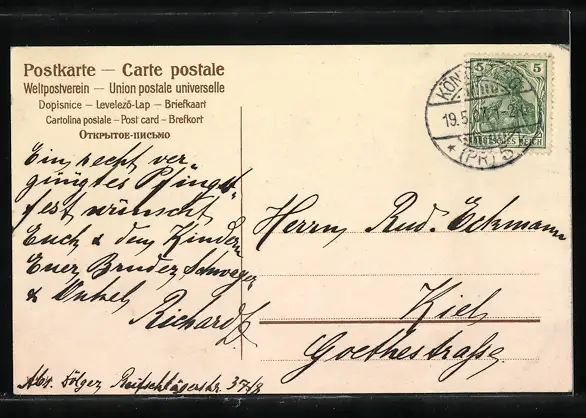 Postkarte — Carte postale
Weltpostverein — Union postale universelle
Dopisnice — Levelező-Lap — Briefkaart
Cartolina postale — Post card — Brefkort
Открытое-письмо
5 5
DEUTSCHES REICH
KÖN
19.5.07. 1-2
* (PR) 5
Ein recht ver
gnügtes Pfingst
fest wünscht
Euch & den Kindern
Euer Bruder, Schwager
& Onkel
Richard
Herrn Rud. Eckmann
Kiel
Goethestraße
Abs. Reifschlägerstr. 37/8